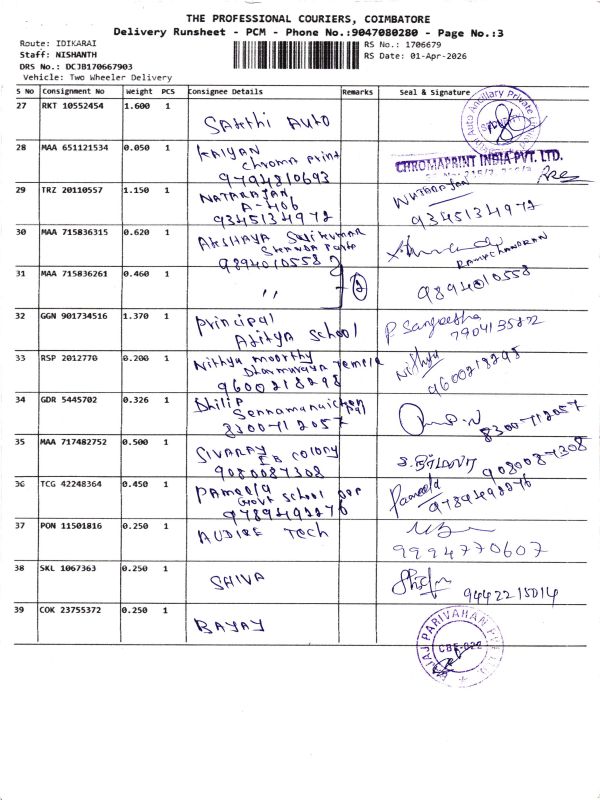 THE PROFESSIONAL COURIERS, COIMBATORE
Delivery Runsheet - PCM - Phone No.:9047080280 - Page No.:3
Route: IDIKARAI
Staff: NISHANTH
DRS No.: DCJB170667903
Vehicle: Two Wheeler Delivery
RS No.: 1706679
RS Date: 01-Apr-2026
S No Consignment No Weight PCS Consignee Details Remarks Seal & Signature
27 RKT 10552454 1.600 1
Sakthi Auto
28 MAA 651121534 0.050 1 KALYAN
Chroma print
9794810693
CHROMAPRINT INDIA PVT. LTD.
29 TRZ 20110557 1.150 1 NATARAJAN
A-406
9345134972
NATARAJAN
9345134972
30 MAA 715836315 0.620 1 AKSHAYA
9894010558
RAMACHANDRAN
31 MAA 715836261 0.460 1
" 2
9894010558
32 GGN 901734516 1.370 1 principal
Aditya School
P Sangeetha
7904135872
33 RSP 2012770 0.200 1 Nithya moorthy
Dharmaraya Temple
9600218298
Nithya
9600218298
34 GDR 5445702 0.326 1 Dhilip
8300712057
8300712057
35 MAA 717482752 0.500 1 SIVARAJ
EB COLONY
9080087308
உ.நிர்மலா
9080087308
36 TCG 42248364 0.450 1 PAMEELA
Govt School
9789492276
Pameela
37 PON 11501816 0.250 1 AUDIRE Tech
9994770607
38 SKL 1067363 0.250 1
SHIVA
9442215014
39 COK 23755372 0.250 1
BAJAJ
BAJAJ PARIVAHAN PVT LTD
CBE-022